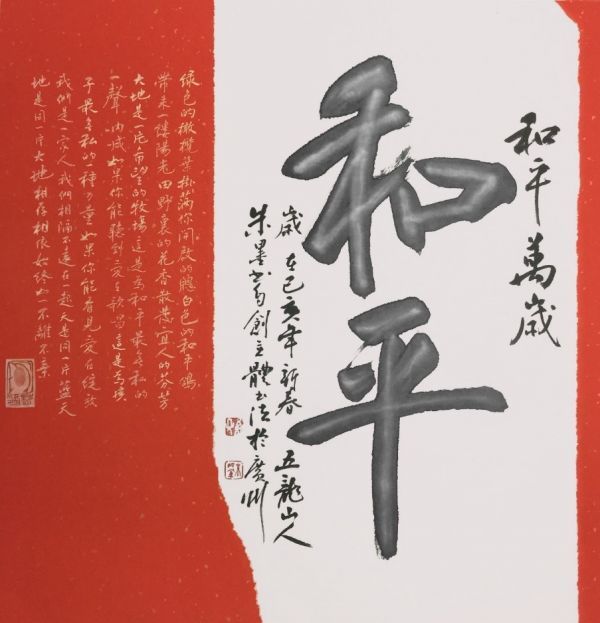 和平萬歲
和平
歲在己亥年新春 五龍山人
朱墨首創立體书法於廣州
绿色的橄欖葉掛满你開啟的腮白色的和平鴿
带来一缕陽光田野裏的花香散发宜人的芬芳
大地是一片希望的牧場這是为和平最無私的
一聲呐喊如果你能聽到爱在歌唱這是为孩
子最無私的一種力量如果你能看見爱在绽放
我們是一家人我們相隔不遠在一起天是同一片藍天
地是同一片大地相存相依始终如一不離不棄